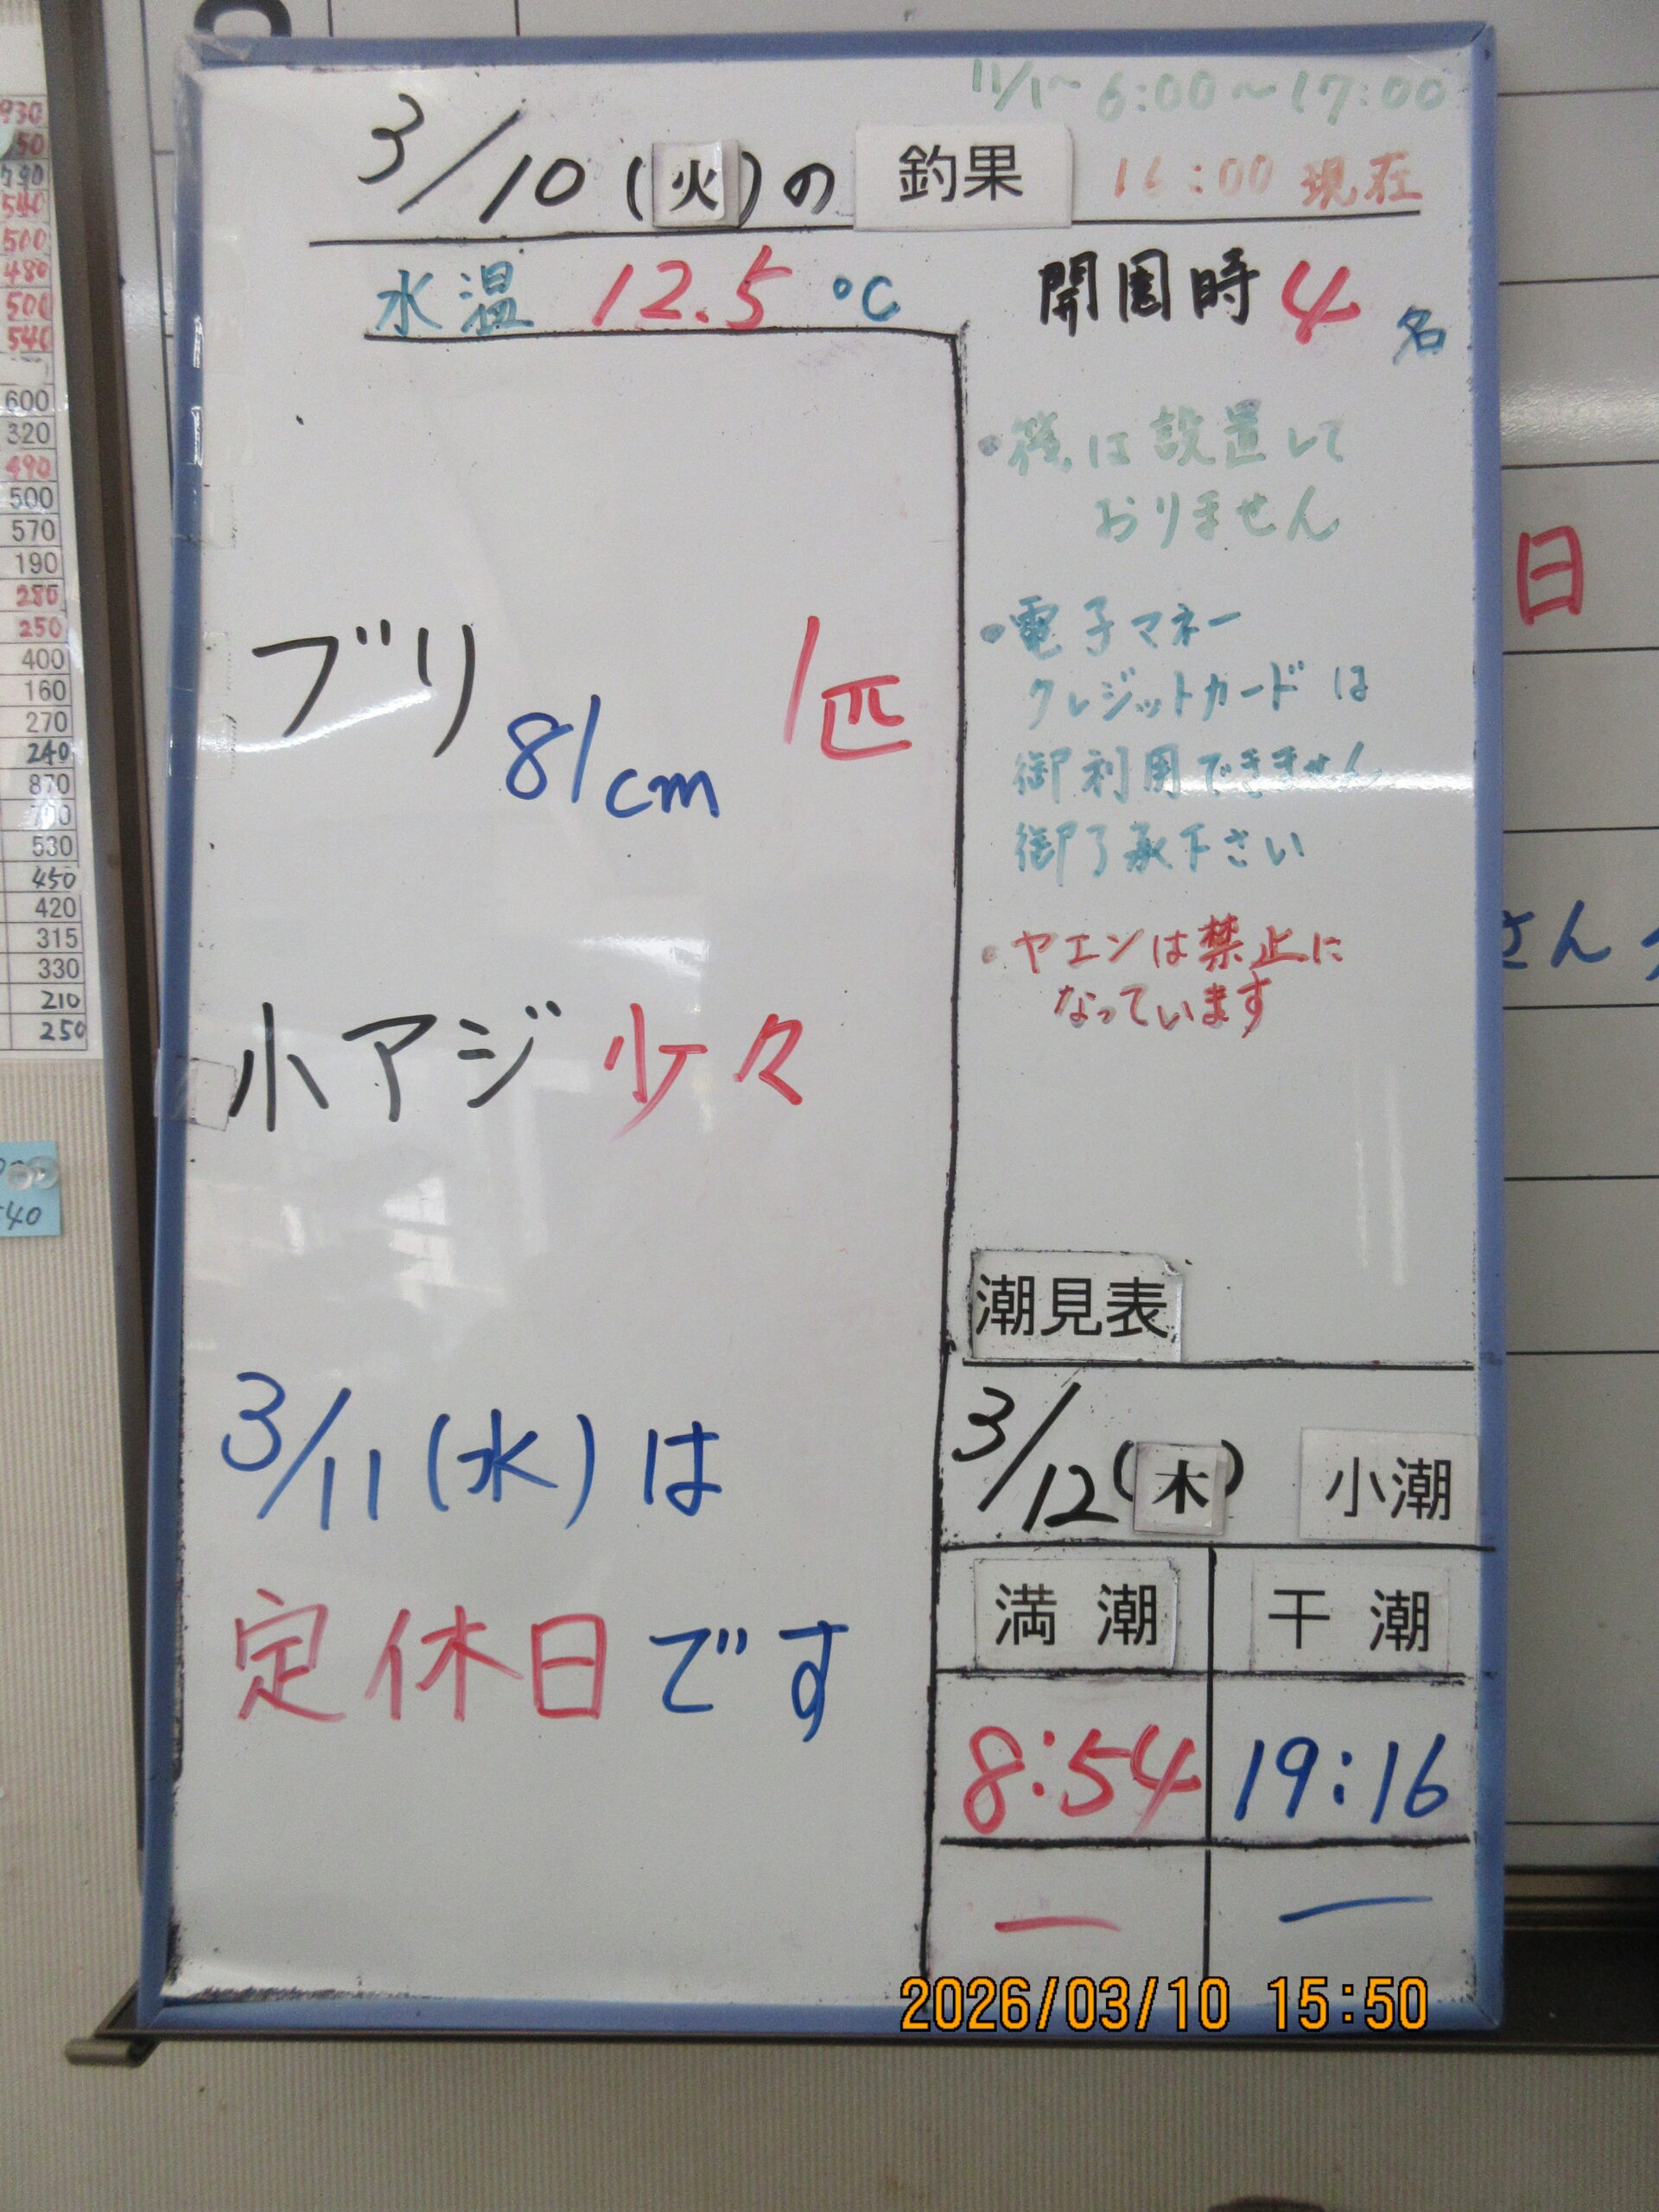 11/1～6:00～17:00
3/10(火)の 釣果 16:00 現在
水温 12.5 ℃
開園時 4名
ブリ 81cm 1匹
小アジ 少々
3/11(水)は
定休日です
・は設置して
おりません
・電子マネー
クレジットカードは
御利用できません
御了承下さい
・ヤエンは禁止に
なっています
潮見表
3/12(木) 小潮
満潮 干潮
8:54 19:16
— —
2026/03/10 15:50
930
50
790
540
500
480
500
540
600
320
490
500
570
190
280
250
400
160
270
240
870
530
450
420
315
330
210
250
40
日
さん